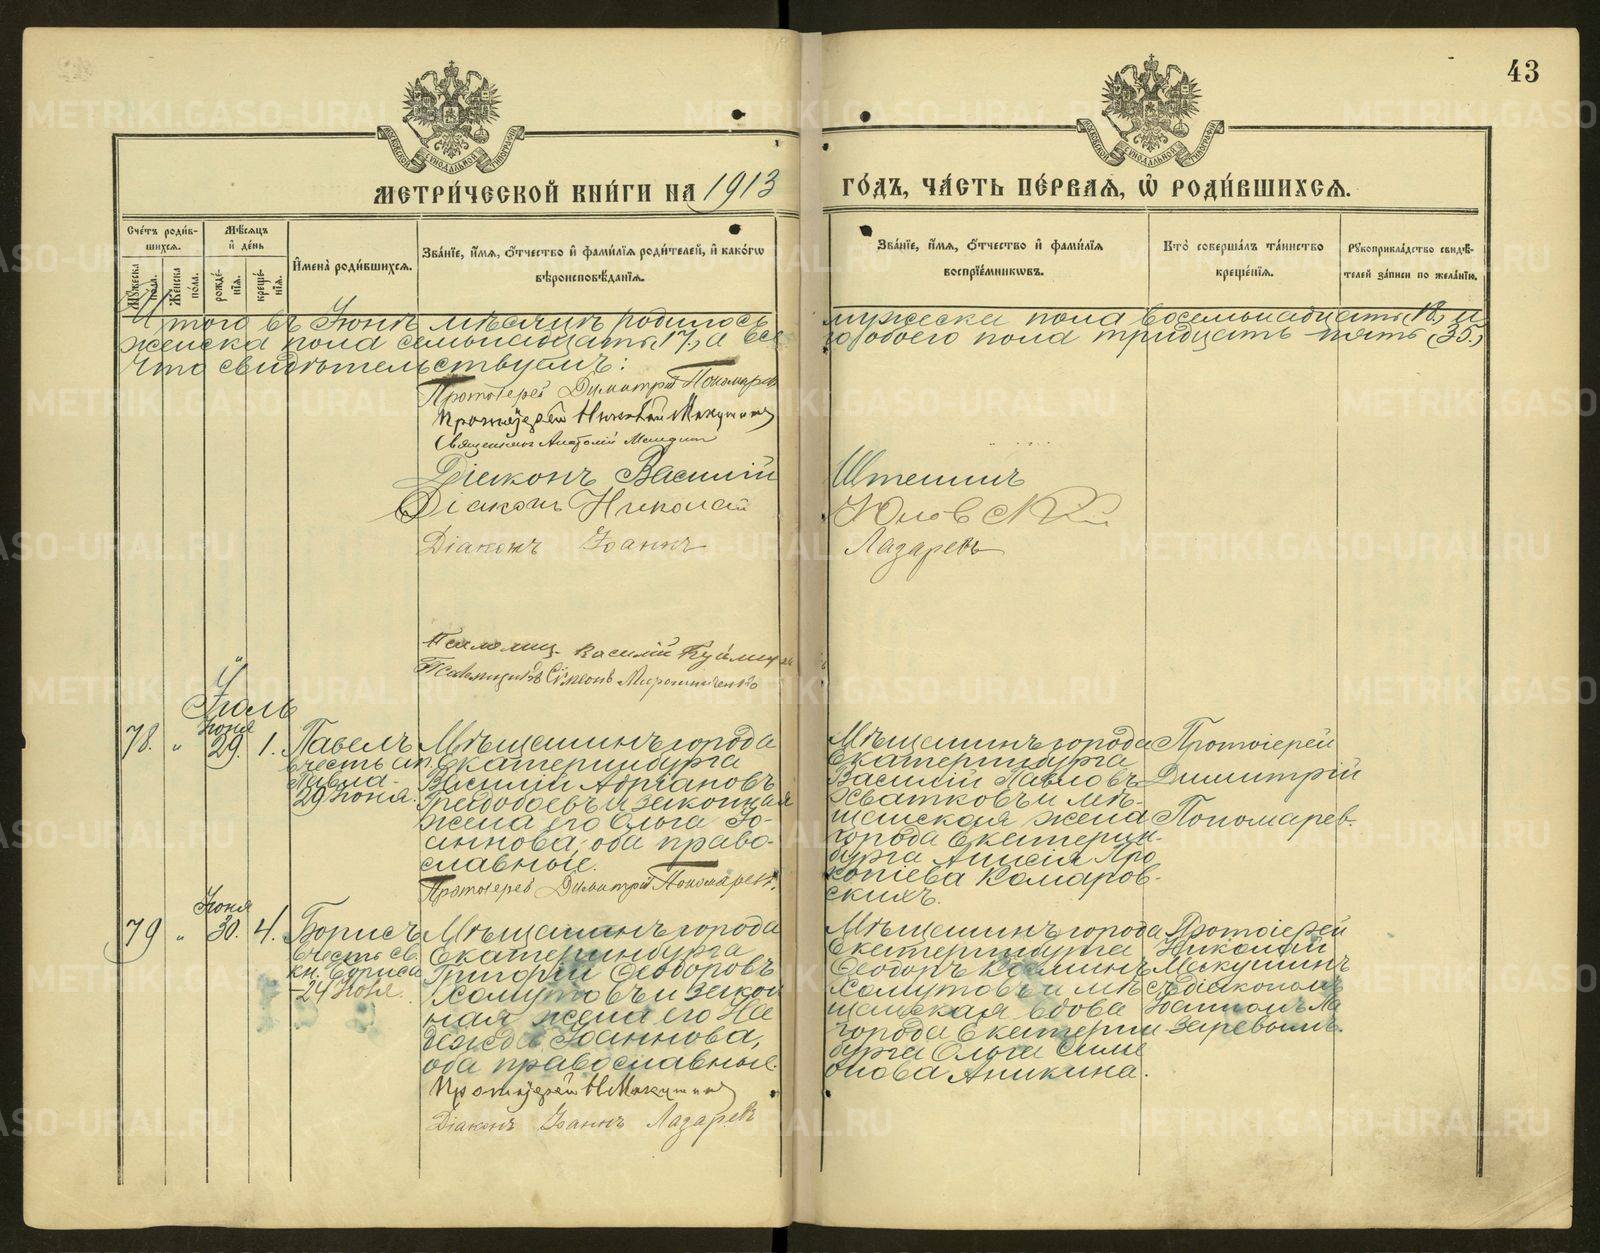 43
МОСКОВСКОЙ СѴНОДАЛЬНОЙ ТИПОГРАФІИ
МОСКОВСКОЙ СѴНОДАЛЬНОЙ ТИПОГРАФІИ
МЕТРИ́ЧЕСКОЙ КНИ́ГИ НА 1913 ГО́ДЪ, ЧА́СТЬ ПЕ́РВАѦ, Ѡ҆ РОДИ́ВШИХСѦ.
Сче́тъ роди́в-
шихсѧ.
Мѣ́сѧцъ
и҆ де́нь
Му́жеска
по́ла.
Же́нска
по́ла.
рожде́-
нїѧ.
креще́-
нїѧ.
И҆мена̀ роди́вшихсѧ.
Зва́нїе, и҆́мѧ, ѻ҆́тчество и҆ фамѝлїѧ роди́телей, и҆ како́гѡ
вѣроисповѣ́данїѧ.
Зва́нїе, и҆́мѧ, ѻ҆́тчество и҆ фамѝлїѧ
воспрїе́мникѡвъ.
Кто̀ соверша́лъ та́инство
креще́нїѧ.
Рꙋкоприкла́дство свидѣ́-
телей за́писи по жела́нїю.
Итого въ Іюнѣ мѣсяцѣ родилось мужеска пола восемьнадцать (18), и
женска пола семьнадцать (17), а всего обоего пола тридцать пять (35),
что свидѣтельствуемъ:
Протоіерей Димитрій Пономаревъ
Протоіерей Николай Макушинъ
Священникъ Анатолій
Діаконъ Василій Штешинъ
Діаконъ Николай Юновскій
Діаконъ Іоаннъ Лазаревъ
Псаломщ. Василій
Псаломщикъ Сімеонъ Мирошниченко
Іюль
78. „ Іюня 29. 1.
Павелъ
въ честь ап.
Павла -
29 Іюня.
Мѣщанинъ города
Екатеринбурга
Василій Адріановъ
и законная
жена его Ольга Іо-
аннова, оба право-
славные.
Протоіерей Димитрій Пономаревъ.
Мѣщанинъ города
Екатеринбурга
Василій Павловъ
Хватковъ и мѣ-
щанская жена
города Екатерин-
бурга Анисія Про
копіева Комаров-
скихъ.
Протоіерей
Димитрій
Пономарев.
79 „ Іюня 30. 4.
Борисъ
въ честь св.
кн. Бориса
- 24 Іюля.
Мѣщанинъ города
Екатеринбурга
Григорій Ѳеодоровъ
Хомутовъ и закон
ная жена его На
дежда Іоаннова,
оба православные.
Протоіерей Н Макушинъ
Діаконъ Іоаннъ Лазаревъ
Мѣщанинъ города
Екатеринбурга
Ѳеодоръ Косминъ
Хомутовъ и мѣ
щанская вдова
города Екатерин
бурга Ольга Симе
онова Аникина.
Протоіерей
Николай
Макушинъ
съ діакономъ
Іоанномъ Ла
заревымъ.
METRIKI.GASO-URAL.RU